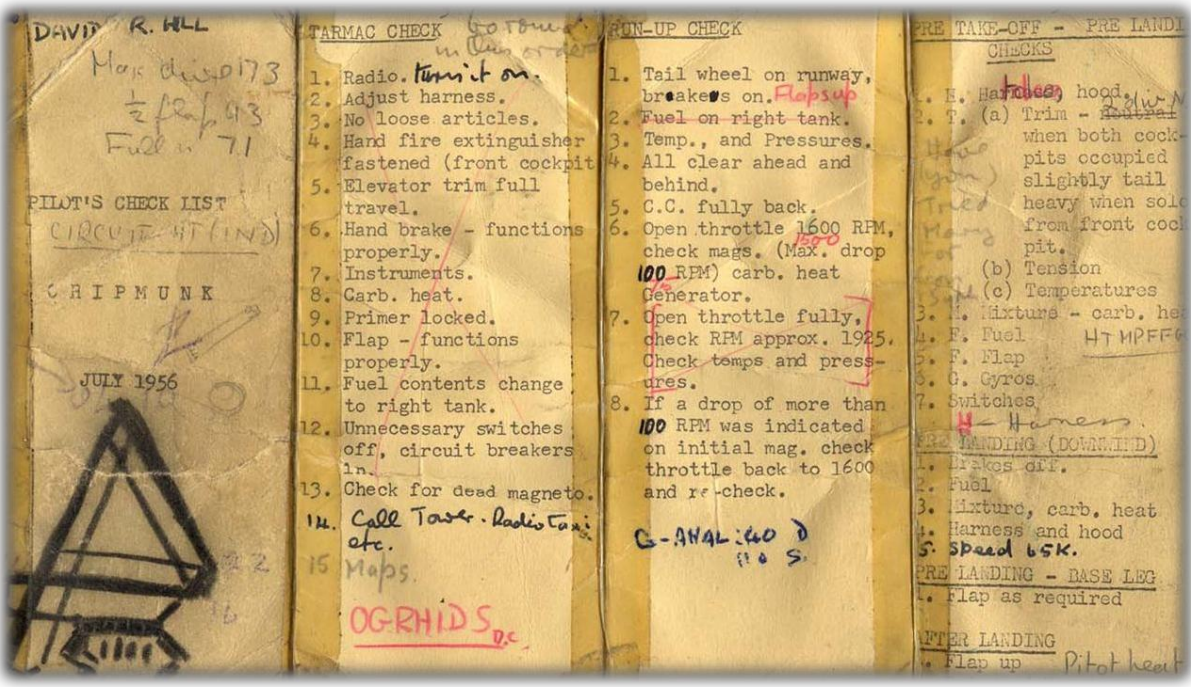 DAVID R. HILL
Max dive 173
½ flap 93
Full " 71
PILOT'S CHECK LIST
CIRCUIT HT (IND)
CHIPMUNK
JULY 1956
TARMAC CHECK
in this order
1. Radio. turn it on.
2. Adjust harness.
3. No loose articles.
4. Hand fire extinguisher
fastened (front cockpit
5. Elevator trim full
travel.
6. Hand brake - functions
properly.
7. Instruments.
8. Carb. heat.
9. Primer locked.
10. Flap - functions
properly.
11. Fuel contents change
to right tank.
12. Unnecessary switches
off, circuit breakers
in.
13. Check for dead magneto.
14. Call Tower. Radio Taxi
etc.
15 Maps.
OGRHIDS D.C
RUN-UP CHECK
1. Tail wheel on runway,
breakes on. Flaps up
2. Fuel on right tank.
3. Temp., and Pressures.
4. All clear ahead and
behind.
5. C.C. fully back.
6. Open throttle 1600 RPM,
1500
check mags. (Max. drop
100 RPM) carb. heat
75
Generator.
7. Open throttle fully,
check RPM approx. 1925.
Check temps and press-
ures.
8. If a drop of more than
100 RPM was indicated
on initial mag. check
throttle back to 1600
and re-check.
PRE TAKE-OFF - PRE LANDI
CHECKS
1. H. hood.
2. T. (a) Trim - neutral
when both cock-
pits occupied
slightly tail
heavy when solo
from front cock
pit.
Have
you
Tried
Many
(b) Tension
(c) Temperatures
3. M. Mixture - carb. hea
4. F. Fuel
HTMPFFG
5. F. Flap
6. G. Gyros
7. Switches
H - Harness.
PRE LANDING (DOWNWIND)
1. Brakes off.
2. Fuel
3. Mixture, carb. heat
4. Harness and hood
5. Speed 65K.
PRE LANDING - BASE LEG
1. Flap as required
AFTER LANDING
1. Flap up Pitot heat